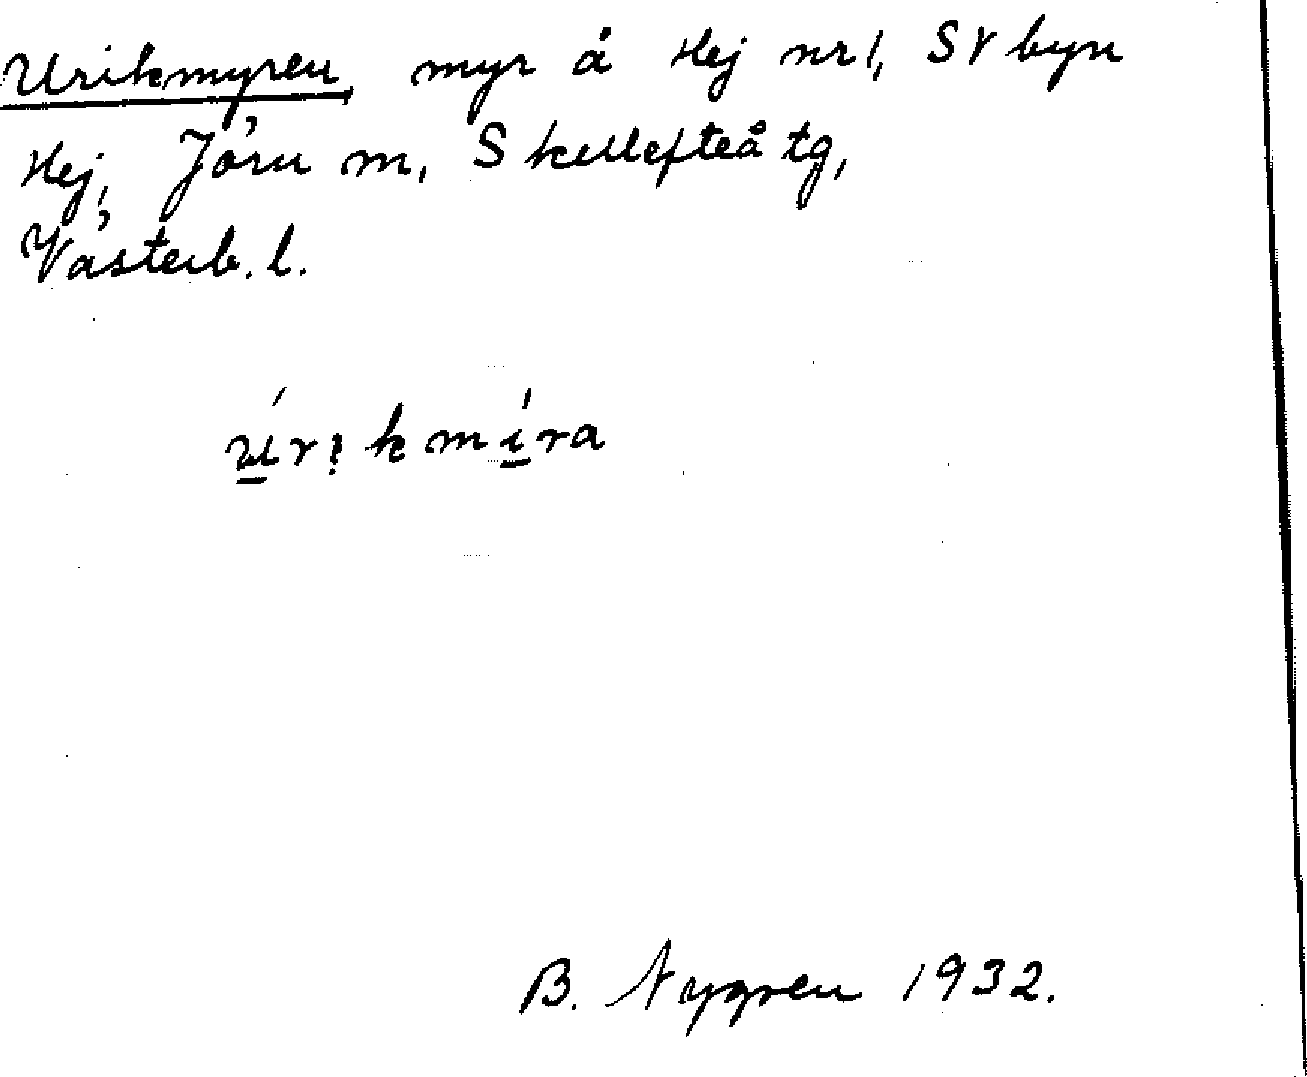 Urikmyren, myr å Hej nr 1, SV byn
Hej, Jörn m, Skellefteå tg,
Västerb. l.
úrịkmíra
B. Nygren 1932.